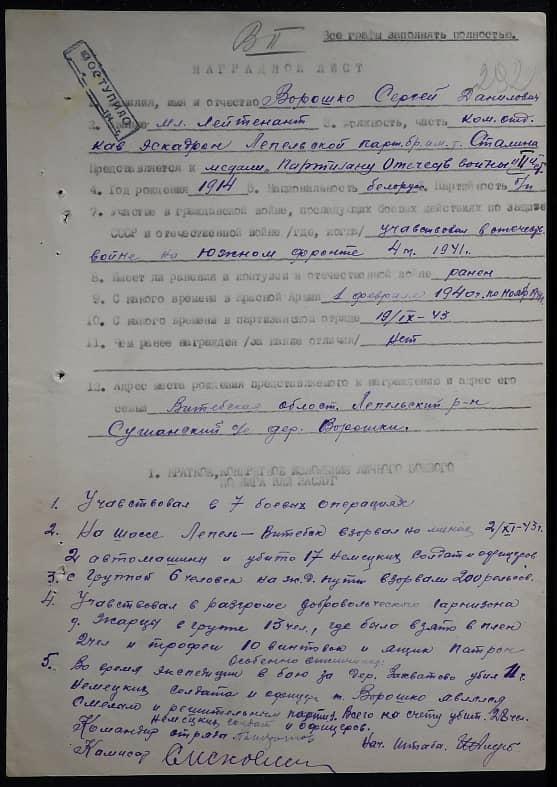 В II
Все графы заполнять полностью.
202
ПОСТУПИЛО
НАГРАДНОЙ ЛИСТ
Фамилия, имя и отчество Ворошко Сергей Данилович
2. Звание мл. лейтенант 3. Должность, часть ком. отд.
кав эскадрон Лепельской парт. бр. им. т. Сталина
Представляется к медали "Партизану Отечеств войны" II ст
4. Год рождения 1914 5. Национальность белорус Партийность б/п
7. Участие в гражданской войне, последующих боевых действиях по защите
СССР и отечественной войне /где, когда/ учавствовал в отечеств.
войне на Южном фронте 4 м. 1941.
8. Имеет ли ранения и контузии в отечественной войне ранен
9. С какого времени в Красной Армии 1 февраля 1940 г. по нояб. 1941
10. С какого времени в партизанском отряде 19/IX-43
11. Чем ранее награжден /за какие отличия/ нет
12. Адрес места рождения представляемого к награждению и адрес его
семьи Витебская област. Лепельский р-н
Сушанский с/с дер. Ворошки.
I. КРАТКОЕ, КОНКРЕТНОЕ ИЗЛОЖЕНИЕ ЛИЧНОГО БОЕВОГО
ПОДВИГА ИЛИ ЗАСЛУГ
1. Учавствовал в 7 боевых операциях
2. На шоссе Лепель – Витебск взорвал на минах 2/XI-43 г.
2 автомашины и убито 17 немецких солдат и офицеров
3. С группой 6 человек на ж.д. пути взорвали 200 рельсов.
4. Учавствовал в разгроме добровольческого гарнизона
д. Жарцы в группе 13 чел., где было взято в плен
2 чел и трофеи 10 винтовок и ящик патрон
5. Во время экспедиции в бою за дер. убил 11 г.
немецких солдата и офицера т. Ворошко
Смелого и решительным партиз. Всего на счету убит. 28 чел.
немецких солдат и офицеров.
Командир отряда
Нач. Штаба
Комисар